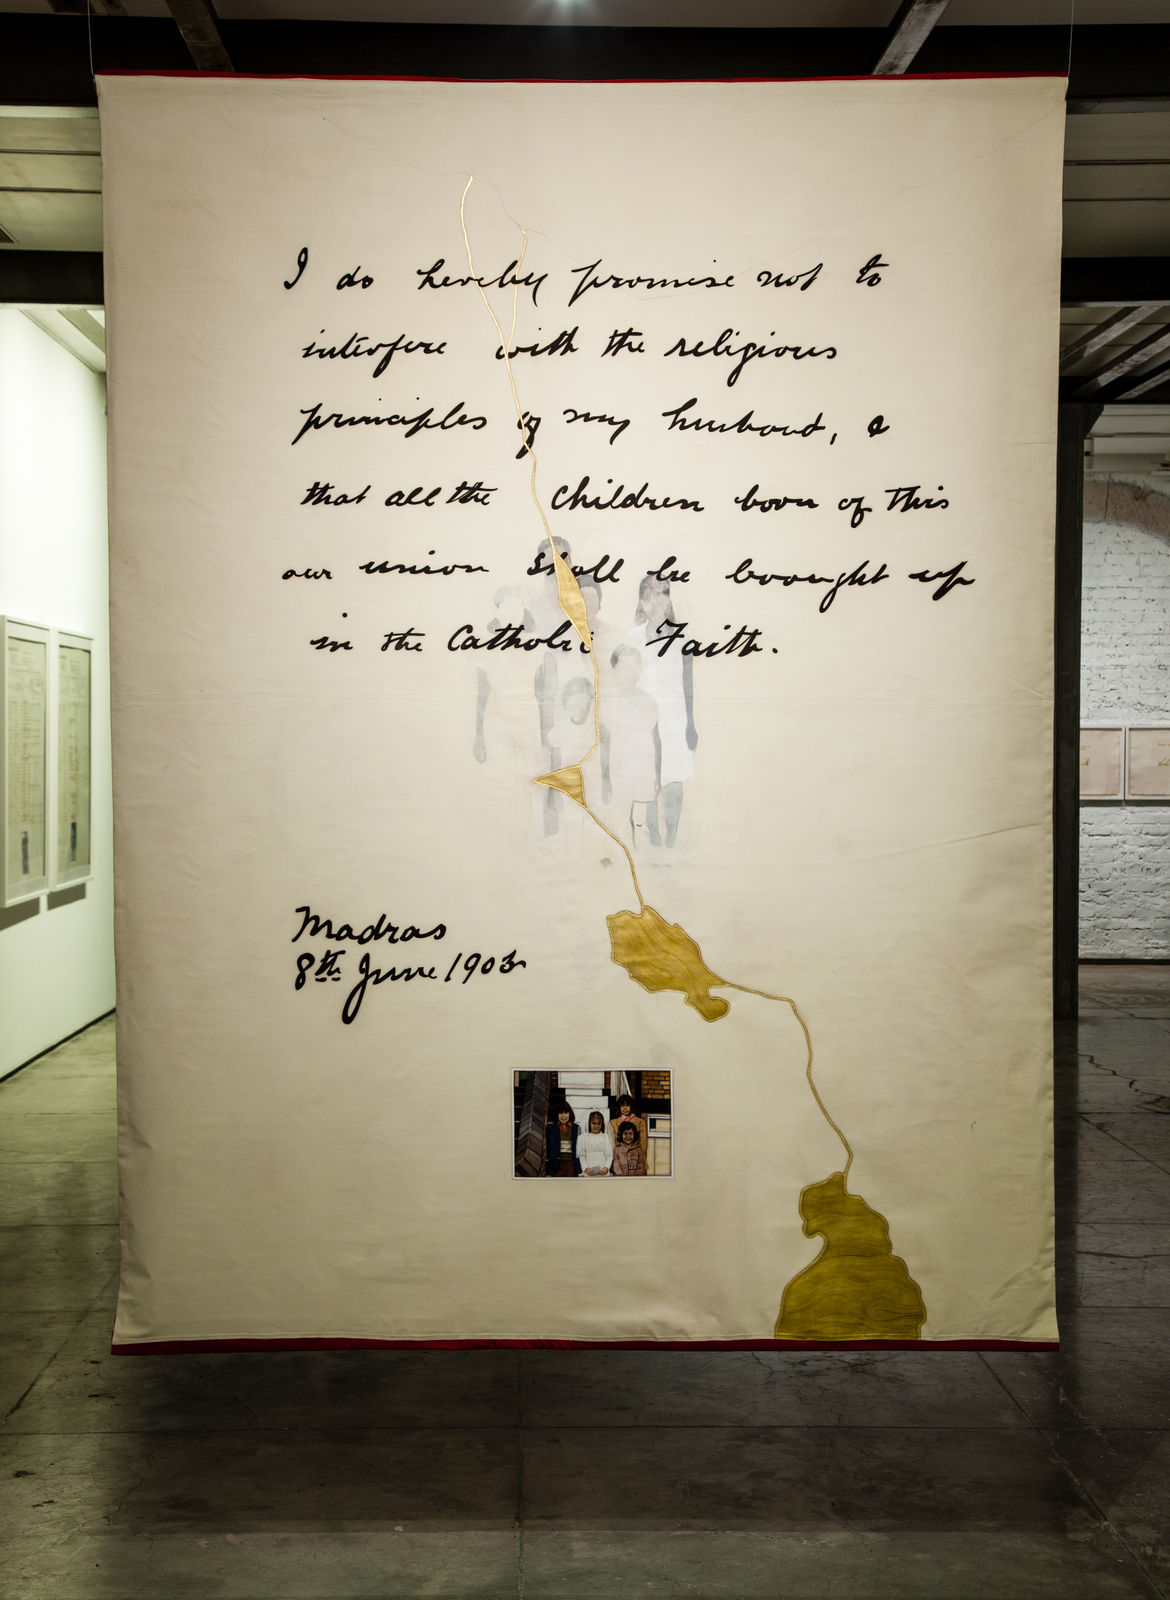 I do hereby promise not to
interfere with the religious
principles of my husband, &
that all the Children born of this
our union shall be brought up
in the Catholic Faith.
Madras
8th June 1903